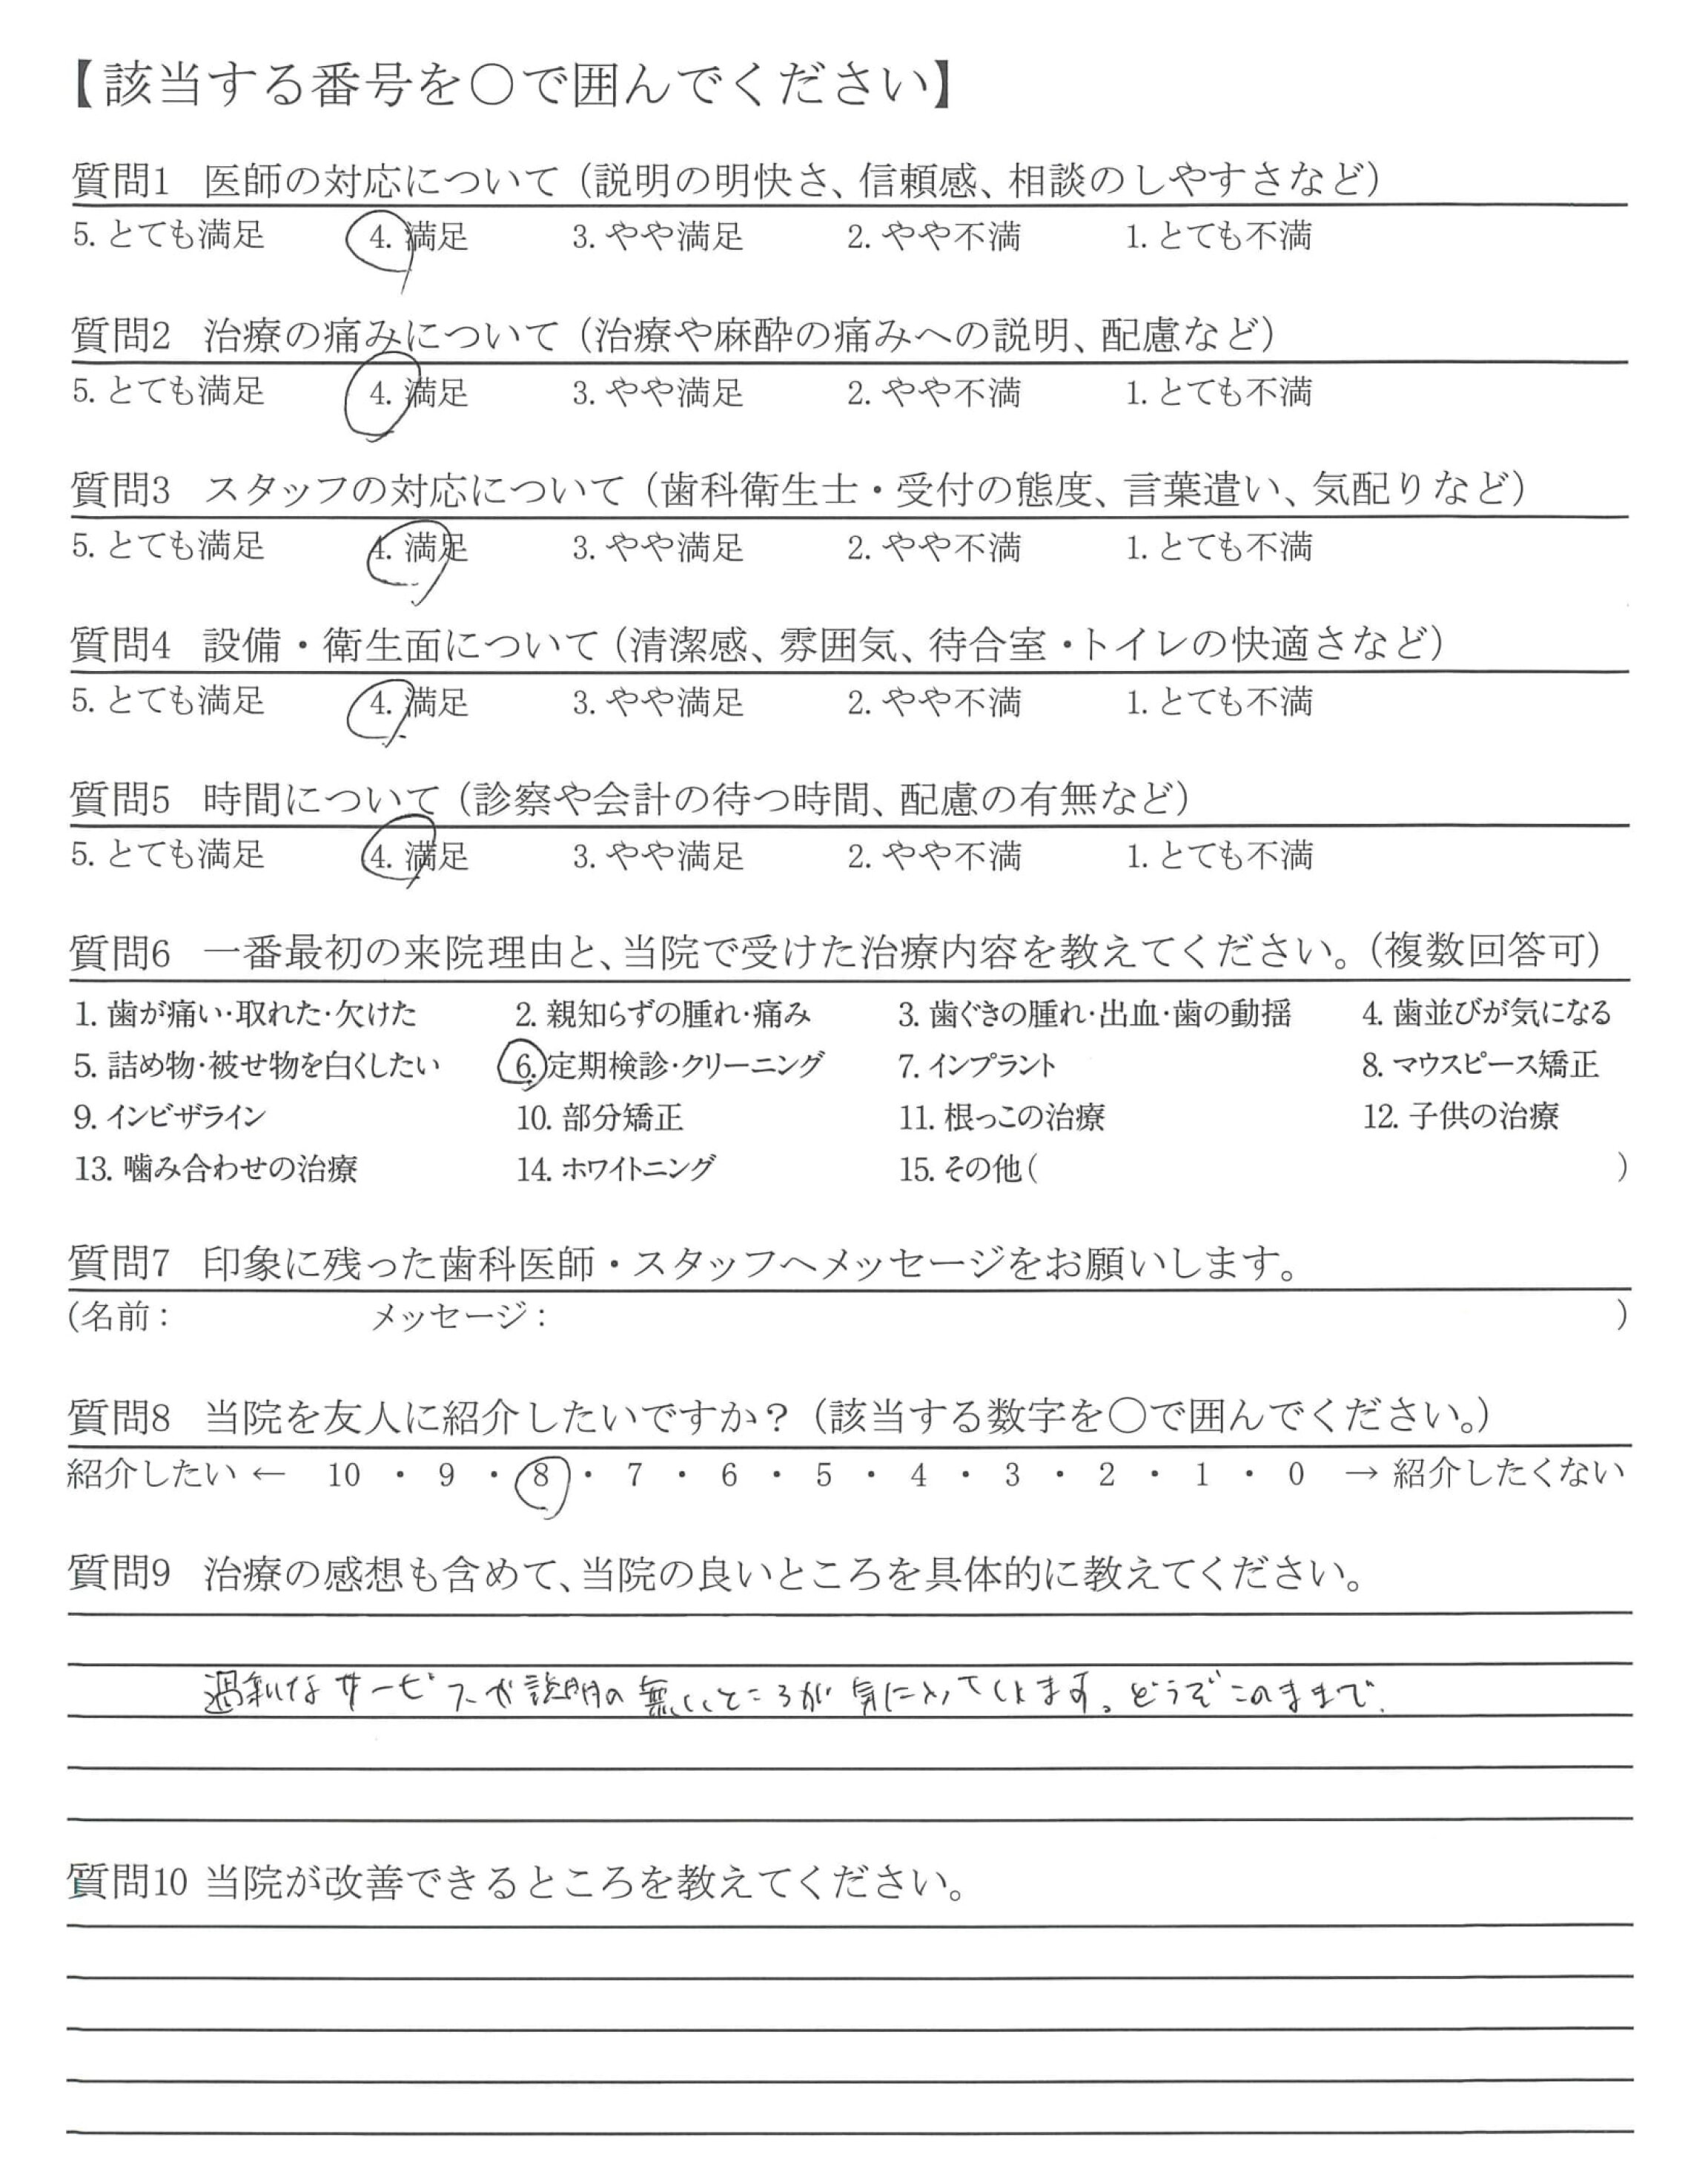 【該当する番号を○で囲んでください】
質問1 医師の対応について（説明の明快さ、信頼感、相談のしやすさなど）
5. とても満足 4. 満足 3. やや満足 2. やや不満 1. とても不満
質問2 治療の痛みについて（治療や麻酔の痛みへの説明、配慮など）
5. とても満足 4. 満足 3. やや満足 2. やや不満 1. とても不満
質問3 スタッフの対応について（歯科衛生士・受付の態度、言葉遣い、気配りなど）
5. とても満足 4. 満足 3. やや満足 2. やや不満 1. とても不満
質問4 設備・衛生面について（清潔感、雰囲気、待合室・トイレの快適さなど）
5. とても満足 4. 満足 3. やや満足 2. やや不満 1. とても不満
質問5 時間について（診察や会計の待つ時間、配慮の有無など）
5. とても満足 4. 満足 3. やや満足 2. やや不満 1. とても不満
質問6 一番最初の来院理由と、当院で受けた治療内容を教えてください。（複数回答可）
1. 歯が痛い・取れた・欠けた 2. 親知らずの腫れ・痛み 3. 歯ぐきの腫れ・出血・歯の動揺 4. 歯並びが気になる
5. 詰め物・被せ物を白くしたい 6. 定期検診・クリーニング 7. インプラント 8. マウスピース矯正
9. インビザライン 10. 部分矯正 11. 根っこの治療 12. 子供の治療
13. 噛み合わせの治療 14. ホワイトニング 15. その他（ ）
質問7 印象に残った歯科医師・スタッフへメッセージをお願いします。
（名前： メッセージ： ）
質問8 当院を友人に紹介したいですか？（該当する数字を○で囲んでください。）
紹介したい ← 10 ・ 9 ・ 8 ・ 7 ・ 6 ・ 5 ・ 4 ・ 3 ・ 2 ・ 1 ・ 0 → 紹介したくない
質問9 治療の感想も含めて、当院の良いところを具体的に教えてください。
過剰なサービスや説明の無いところが気に入っています。どうぞこのままで.
質問10 当院が改善できるところを教えてください。